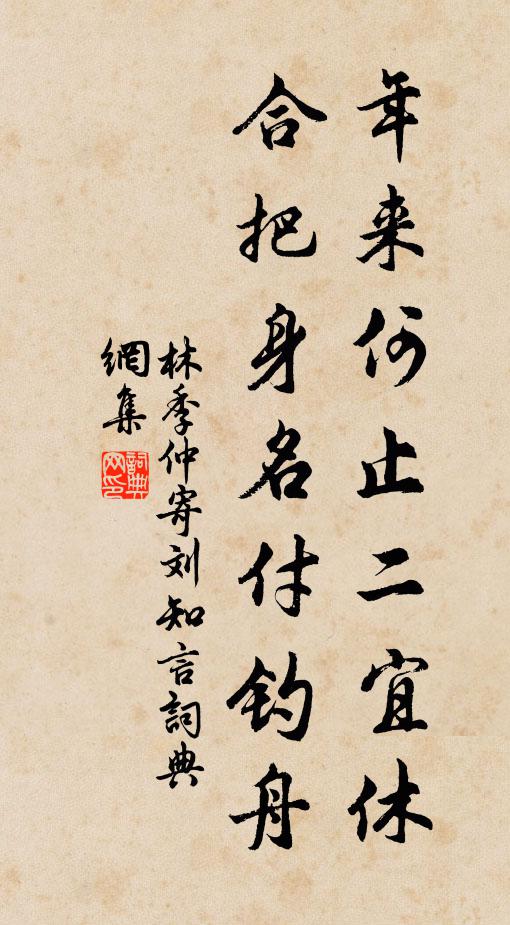 年来何止二宜休
合把身名付钓舟
林季仲寄刘知言詞典
網集
詞典
网印